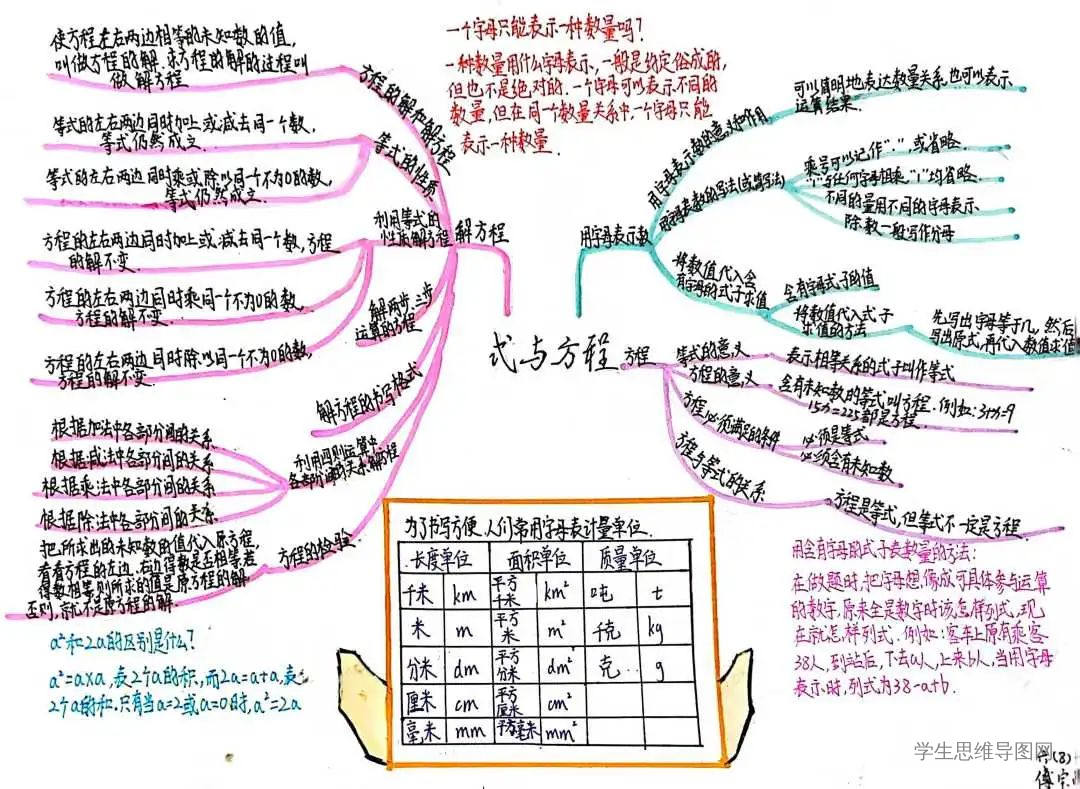 式与方程
一个字母只能表示一种数量吗?
一种数量用什么字母表示,一般是约定俗成的,
但也不是绝对的.一个字母可以表示不同的
数量,但在同一个数量关系中,一个字母只能
表示一种数量.
用字母表示数
用字母表示数的意义和作用
可以简明地表达数量关系,也可以表示
运算结果.
用字母表数的写法(或简写法)
乘号可以记作"·",或省略.
"1"与任何字母相乘."1"均省略.
不同的量用不同的字母表示
除数一般写作分母
将数值代入含
有字母的式子求值
含有字母式子的值
将数值代入式子
求值的方法
先写出字母等于几,然后
写出原式,再代入数值求值
方程
等式的意义
表示相等关系的式子叫作等式
方程的意义
含有未知数的等式叫方程.例如:3+x=9
都是方程.
方程必须满足的条件
必须是等式
必须含有未知数
方程与等式的关系
方程是等式,但等式不一定是方程.
解方程
方程的解和解方程
使方程左右两边相等的未知数的值,
叫做方程的解.求方程的解的过程叫
做解方程
等式的性质
等式的左右两边同时加上或减去同一个数,
等式仍然成立.
等式的左右两边同时乘或除以同一个不为0的数,
等式仍然成立.
利用等式的
性质解方程
方程的左右两边同时加上或减去同一个数,方程
的解不变.
方程的左右两边同时乘同一个不为0的数,
方程的解不变.
方程的左右两边同时除以同一个不为0的数,
方程的解不变.
解两步、三步
运算的方程
解方程的书写格式
利用四则运算中
各部分间的关系解方程
根据加法中各部分间的关系
根据减法中各部分间的关系
根据乘法中各部分间的关系
根据除法中各部分间的关系
方程的检验
把所求出的未知数的值代入原方程,
看看方程的左边、右边得数是否相等,若
得数相等,则所求的值是原方程的解,
否则,就不是原方程的解.
a²和2a的区别是什么?
a²=a×a,表2个a的积,而2a=a+a,表
2个a的和.只有当a=2或a=0时,a²=2a
为了书写方便,人们常用字母表计量单位.
长度单位 面积单位 质量单位
千米 km 平方千米 km² 吨 t
米 m 平方米 m² 千克 kg
分米 dm 平方分米 dm² 克 g
厘米 cm 平方厘米 cm²
毫米 mm 平方毫米 mm²
用含有字母的式子表数量的方法:
在做题时,把字母想像成可具体参与运算
的数字,原来全是数字时该怎样列式,现
在就怎样列式.例如:客车上原有乘客
38人,到站后,下去a人,上来b人,当用字母
表示时,列式为38-a+b.
学生思维导图网